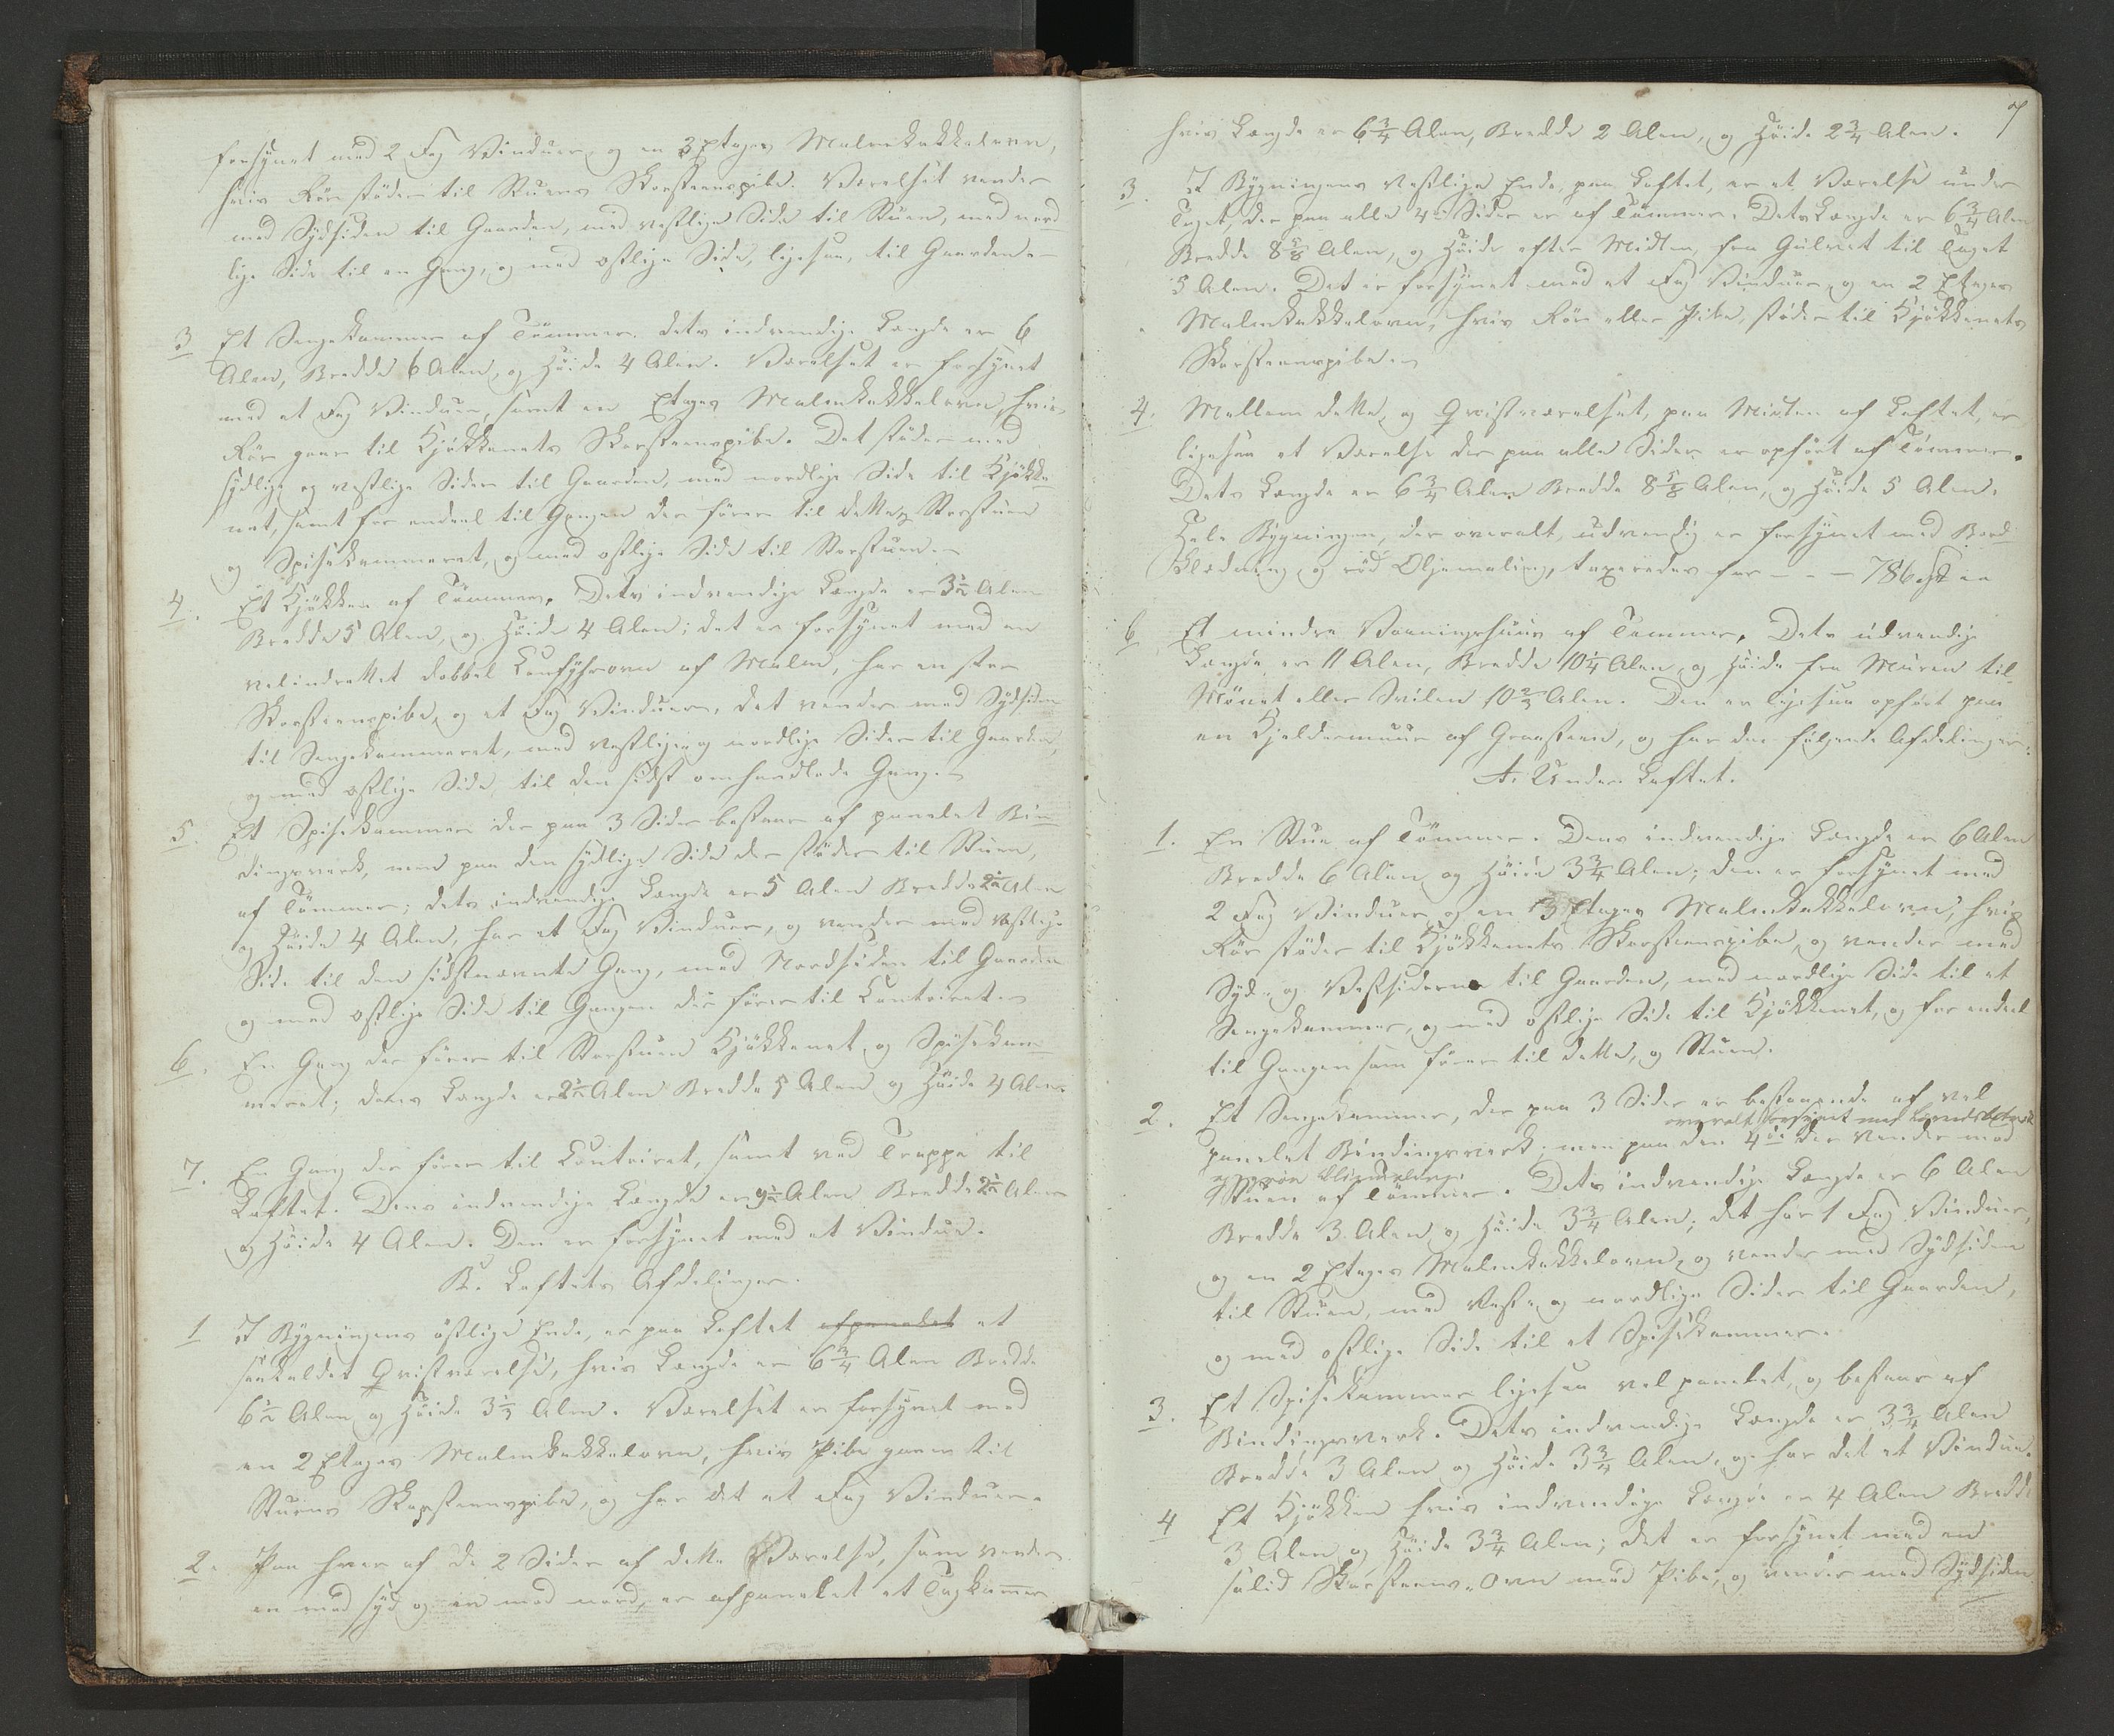 forsynet med 2 Fag Vinduer, og en 3 Etages Malmkakkelovn,
hvis Rör stöder til Stuens Skorsteenspibe. Værelset vender
med Sydsiden til Gaarden, med vestlige Side til Stuen, med nord-
lige Side til en Gang, og med ostlige Side, ligesaa, til Gaarden.-
3 Et Sengekammer af Tömmer. Dets indvendige Længde er 6
Alen, Bredde 6 Alen, og Höide 4 Alen. Værelset er forsynet
med et Fag Vinduer, samt en Etages Malmkakkelovn, hvis
Rör gaar til Kjökkenets Skorsteenspibe. Det stöder med
sydlige og vestlige Sider til Gaarden, med nordlige Side til Kjökke-
net, samt for endeel til Gangen der förer til dette, Storstuen
og Spisekammeret, og med ostlige Side til Storstuen.-
4. Et Kjökken af Tömmer. Dets indvendige Længde er 3½ Alen
Bredde 5 Alen, og Höide 4 Alen; det er forsynet med en
velindrettet dobbel Comfyhrovn af Malm, har en stor
Skorsteenspibe, og et Fag Vinduer, det vender med Sydsiden
til Sengekammeret, med vestlige og nordlige Sider til Gaarden,
og med ostlige Side, til den sidst omhandlede Gang.-
5. Et Spisekammer der paa 3 Sider bestaar af panelet Bin-
dingsverk, men paa den sydlige Side der stöder til Stuen,
af Tömmer; dets indvendige Længde er 5 Alen Bredde 2½ Alen
og Höide 4 Alen, har et Fag Vinduer, og vender med vestlige
Side til den sidstnævnte Gang, med Nordsiden til Gaarden
og med ostlige Side til Gangen der förer til Contoiret.-
6. En Gang der förer til Storstuen Kjökkenet og Spisekam-
meret; dens Længde er 2½ Alen Bredde 5 Alen og Höide 4 Alen.
7. En Gang der förer til Contoiret, samt ved Trappe til
Loftet. Dens indvendige Længde er 9½ Alen Bredde 2½ Alen
og Höide 4 Alen. Den er forsynet med et Vindue.
B. Loftets Afdelinger.
1 I Bygningens östlige Ende, er paa Loftet afpanelet et
saakaldet Qvistværelse, hvis Længde er 6¾ Alen Bredde
6½ Alen og Höide 3⅓ Alen. Værelset er forsynet med
en 2 Etages Malmkakkelovn, hvis Pibe gaaer til
Stuens Skorsteenspibe, og har det et Fag Vinduer.
2. Paa hver af de 2 Sider af dette Værelse, som vender
en mod syd og en mod nord, er afpanelet et Tagkammer
7
hvis Længde er 6¾ Alen, Bredde 2 Alen, og Höide 2¾ Alen.
3. I Bygningens vestlige Ende, paa Loftet, er et Værelse under
Taget, der paa alle 4 Sider er af Tömmer. Dets Længde er 6¾ Alen
Bredde 8⅝ Alen, og Höide efter Midten, fra Gulvet til Taget
5 Alen. Det er forsynet med et Fag Vinduer, og en 2 Etages
Malmkakkelovn, hvis Rör eller Pibe, stöder til Kjökkenets
Skorsteenspibe.-
4. Mellem dette, og Qvistværelset, paa Midten af Loftet, er
ligesaa et Værelse der paa alle Sider er opfört af Tömmer.
Dets Længde er 6¾ Alen Bredde 8⅝ Alen, og Höide 5 Alen.
Hele Bygningen, der overalt, udvendig er forsynet med Bord-
klædning og röd Oljemaling, taxeredes for - - - 786
6 Et mindre Vaaningshuus af Tømmer. Dets udvendige
Længde er 11 Alen, Bredde 10¼ Alen, og Höide fra Muren til
Mönet eller Svilen 10⅔ Alen. Den er ligesaa opfört paa
en Kjeldermuur af Graasteen, og har den fölgende Afdelinger:
A. Under Loftet.
1. En Stue af Tömmer. Dens indvendige Længde er 6 Alen
Bredde 6 Alen og Höide 3¾ Alen; den er forsynet med
2 Fag Vinduer, og en 3 Etages Malmkakkelovn, hvis
Rör stöder til Kjökkenets Skorsteenspibe, og vender med
Syd- og Vestsiderne til Gaarden, med nordlige Side til et
Sengekammer, og med ostlige Side til Kjökkenet, og for endeel
til Gangen som förer til dette, og Stuen.
2. Et Sengekammer, der paa 3 Sider er bestaaende af vel
overalt forsynet med
panelet Bindingsverk, men paa den 4de der vender mod
Stuen af Tömmer. Dets indvendige Længde er 6 Alen
Bredde 3 Alen og Höide 3¾ Alen; det har 1 Fag Vinduer,
og en 2 Etages Malmkakkelovn, og vender med Sydsiden
til Stuen, med Vest- og nordlige Sider til Gaarden,
og med ostlige Side til et Spisekammer.
3. Et Spisekammer ligesaa vel panelet, og bestaar af
Bindingsverk. Dets indvendige Længde er 3¾ Alen
Bredde 3 Alen og Höide 3¾ Alen, og har det et Vindue.
4 Et Kjökken hvis indvendige Længde er 4 Alen Bredde
3 Alen og Höide 3¾ Alen; det er forsynet med en
solid Skorsteens-Ovn med Pibe, og vender med Sydsiden